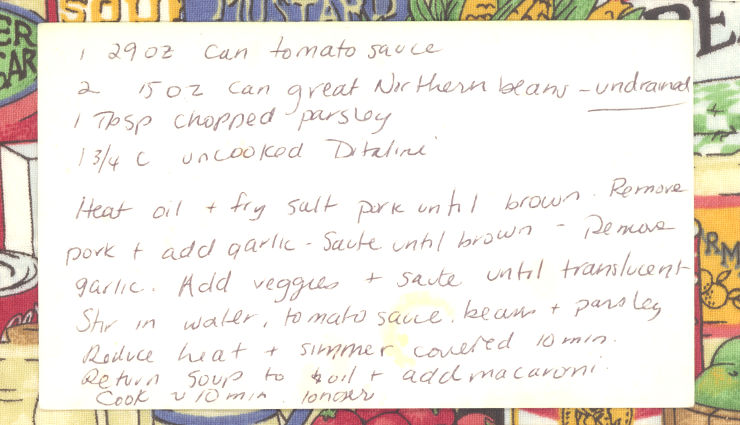 SOUP
MUSTARD
ER
GAR
1 29 oz can tomato sauce
2 15 oz can great Northern beans - undrained
1 Tbsp chopped parsley
1 3/4 C uncooked Ditalini
Heat oil + fry salt pork until brown. Remove
pork + add garlic - Saute until brown - Remove
garlic. Add veggies + saute until translucent
Stir in water, tomato sauce, beans + parsley
Reduce heat + simmer covered 10 min.
Return soup to boil + add macaroni.
Cook ~ 10 min. longer